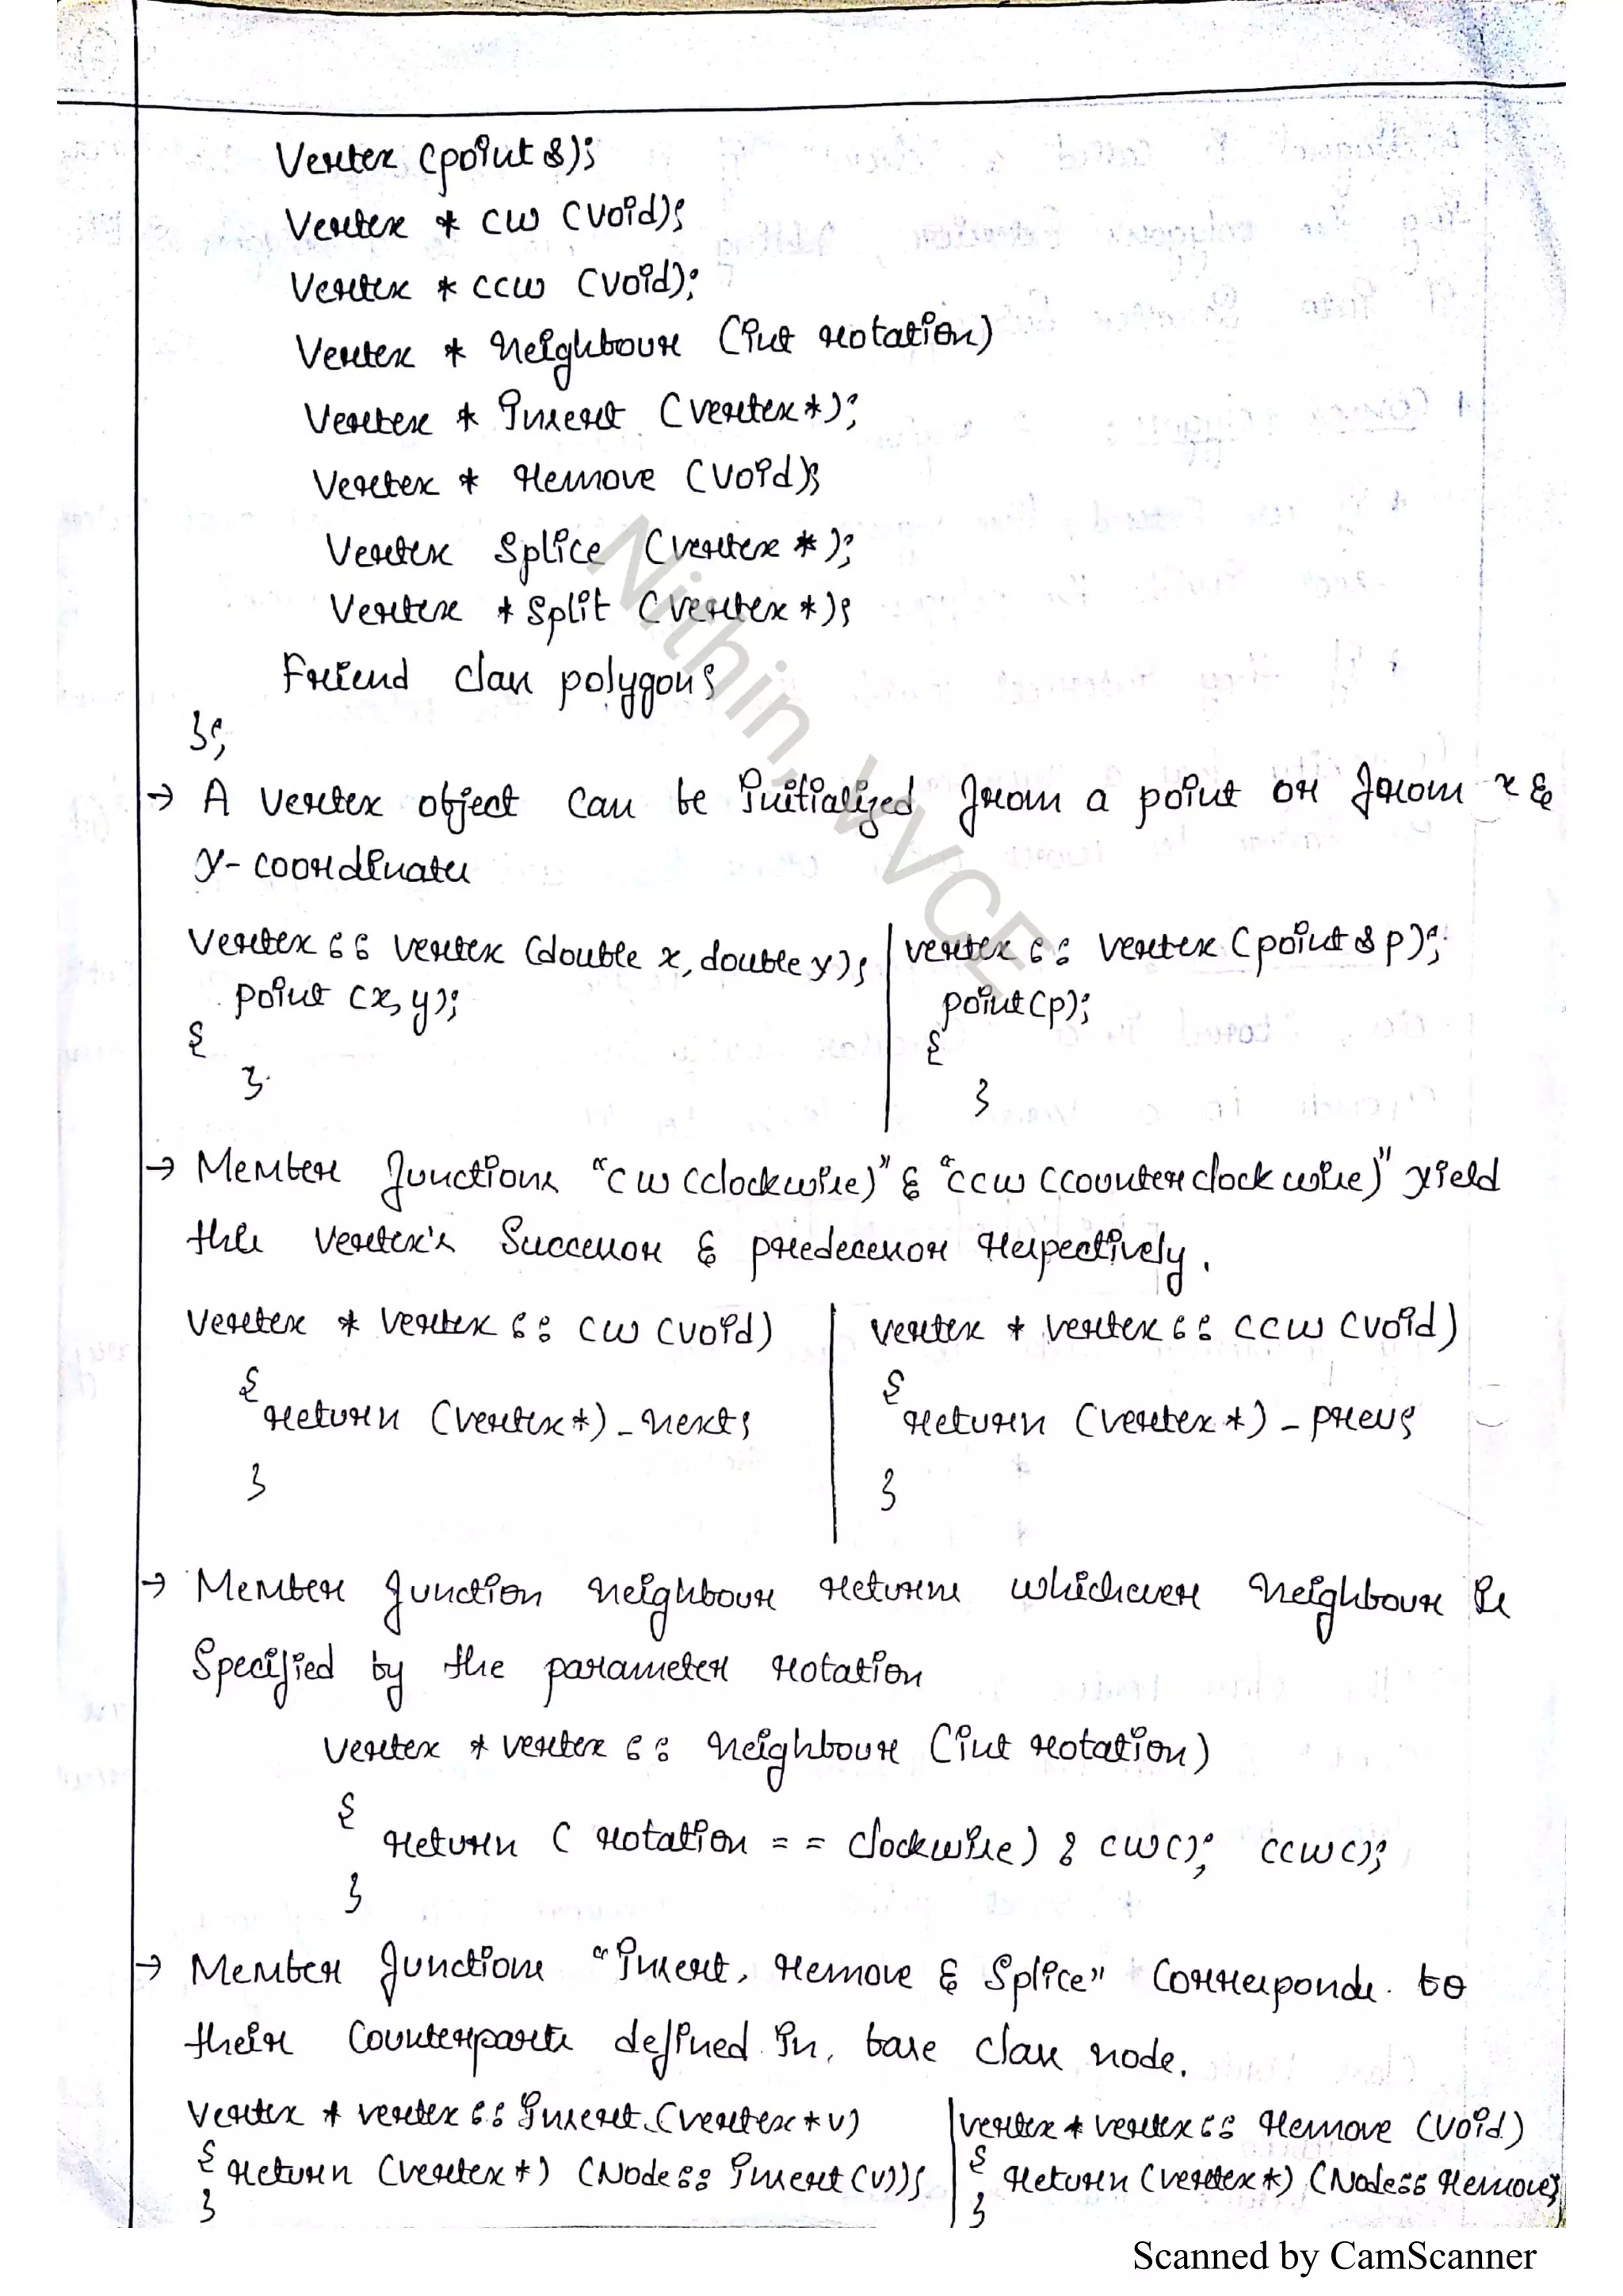 Vertex (point &);
Vertex * cw (void);
Vertex * ccw (void);
Vertex * neighbour (int rotation)
Vertex * insert (vertex*);
Vertex * remove (void);
Vertex splice (vertex *);
Vertex * split (vertex *);
Friend class polygon;
};
→ A vertex object can be initialized from a point or from x &
y-coordinates
Vertex :: vertex (double x, double y);
point (x, y);
{
}
vertex :: vertex (point & p);
point (p);
{
}
→ Member functions "cw (clockwise)" & "ccw (counter clock wise)" yield
this vertex's successor & predecessor respectively.
Vertex * vertex :: cw (void)
{
return (vertex *) _next;
}
vertex * vertex :: ccw (void)
{
return (vertex *) _prev;
}
→ Member function neighbour returns whichever neighbour is
specified by the parameter rotation
vertex * vertex :: neighbour (int rotation)
{
return ( rotation == clockwise) ? cw(); ccw();
}
→ Member functions "insert, remove & splice" corresponds to
their counterparts defined in, base class node.
Vertex * vertex :: insert (vertex * v)
{ return (vertex *) (Node :: insert (v));
}
vertex * vertex :: remove (void)
{ return (vertex *) (Node :: remove;
}
Nithin, VVCE
Scanned by CamScanner